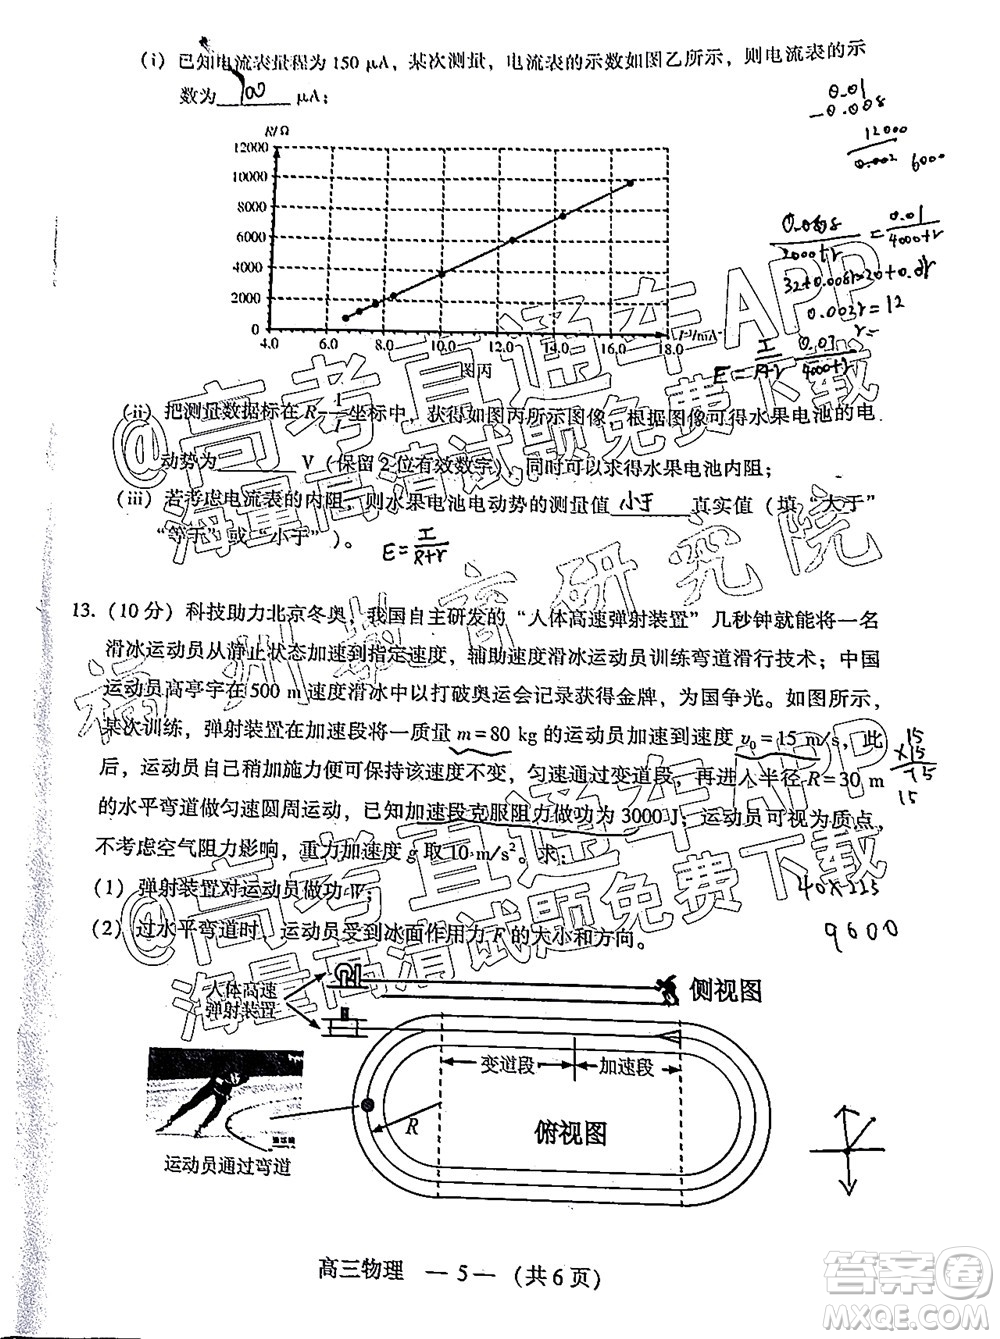 (i) 已知电流表量程为 150 μA，某次测量，电流表的示数如图乙所示，则电流表的示
数为 100 μA；
0.01
-0.008
12000
0.002
6000
R/Ω
12000
10000
8000
6000
4000
2000
0
4.0 6.0 8.0 10.0 12.0 14.0 16.0 18.0
图丙
0.01
4000+r
2000+r
0.002r=12
r=
E= I/(R+r) 4000+r
(ii) 把测量数据标在 R-1/I 坐标中，获得如图丙所示图像，根据图像可得水果电池的电
动势为 V（保留 2 位有效数字），同时可以求得水果电池内阻；
(iii) 若考虑电流表的内阻，则水果电池电动势的测量值 小于 真实值（填“大于”
“等于”或“小于”）。 E= I/(R+r)
13.（10 分）科技助力北京冬奥，我国自主研发的“人体高速弹射装置”几秒钟就能将一名
滑冰运动员从静止状态加速到指定速度，辅助速度滑冰运动员训练弯道滑行技术；中国
运动员高亭宇在 500 m 速度滑冰中以打破奥运会记录获得金牌，为国争光。如图所示，
某次训练，弹射装置在加速段将一质量 m=80 kg 的运动员加速到速度 v₀=15 m/s，此
后，运动员自己稍加施力便可保持该速度不变，匀速通过变道段，再进入半径 R=30 m
的水平弯道做匀速圆周运动，已知加速段克服阻力做功为 3000 J；运动员可视为质点，
不考虑空气阻力影响，重力加速度 g 取 10 m/s²。求：
15
×15
75
15
(1) 弹射装置对运动员做功 W；
40×225
(2) 过水平弯道时，运动员受到冰面作用力 F 的大小和方向。
9600
人体高速
弹射装置
侧视图
变道段
加速段
R
俯视图
运动员通过弯道
高三物理 — 5 — （共 6 页）
@高考直通车APP
海量高清试题免费下载
福州教育研究院
@高考直通车APP
海量高清试题免费下载
答案圈
MXQE.COM